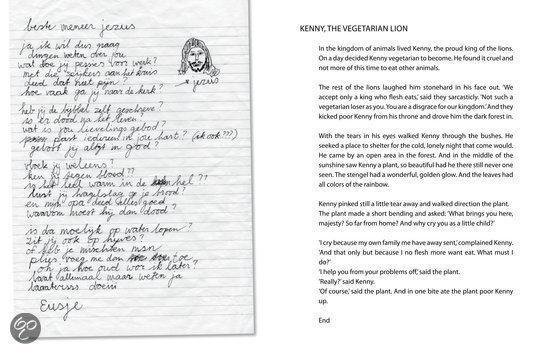 beste meneer jezus
ja ik wil dus graag
dingen weten over jou
wat doe jij voor werk?
met die spijkers aan het kruis
deed dat niet pijn?
hoe vaak ga jij naar de kerk?
jezus
heb jij de bijbel zelf geschreve?
is er dood na het leven?
wat is jou lievelings gebod?
past iedereen in jou hart? (ik ook???)
geloft jij altijt in god?
vloek jij weleens?
ken jij tegen bloed??
is het heel warm in de hel?!
lust jij hagelslag op je brood?
en mijn opa deed alles goed
waarom moest hij dan dood?
is da moeilijk op water lopen?
zit jij ook op hyves?
of heb je misschien msn
plies voeg me dan toe
oh ja hoe oud wor ik later?
laat allemaal maar weten ja
laaatersss doeiii
Eusje
KENNY, THE VEGETARIAN LION
In the kingdom of animals lived Kenny, the proud king of the lions.
On a day decided Kenny vegetarian to become. He found it cruel and
not more of this time to eat other animals.
The rest of the lions laughed him stonehard in his face out. 'We
accept only a king who flesh eats,' said they sarcasticly. 'Not such a
vegetarian loser as you. You are a disgrace for our kingdom.' And they
kicked poor Kenny from his throne and drove him the dark forest in.
With the tears in his eyes walked Kenny through the bushes. He
seeked a place to shelter for the cold, lonely night that come would.
He came by an open area in the forest. And in the middle of the
sunshine saw Kenny a plant, so beautiful had he there still never one
seen. The stengel had a wonderful, golden glow. And the leaves had
all colors of the rainbow.
Kenny pinked still a little tear away and walked direction the plant.
The plant made a short bending and asked: 'What brings you here,
majesty? So far from home? And why cry you as a little child?'
'I cry because my own family me have away sent,' complained Kenny.
'And that only because I no flesh more want eat. What must I
do?'
'I help you from your problems off,' said the plant.
'Really?' said Kenny.
'Of course,' said the plant. And in one bite ate the plant poor Kenny
up.
End